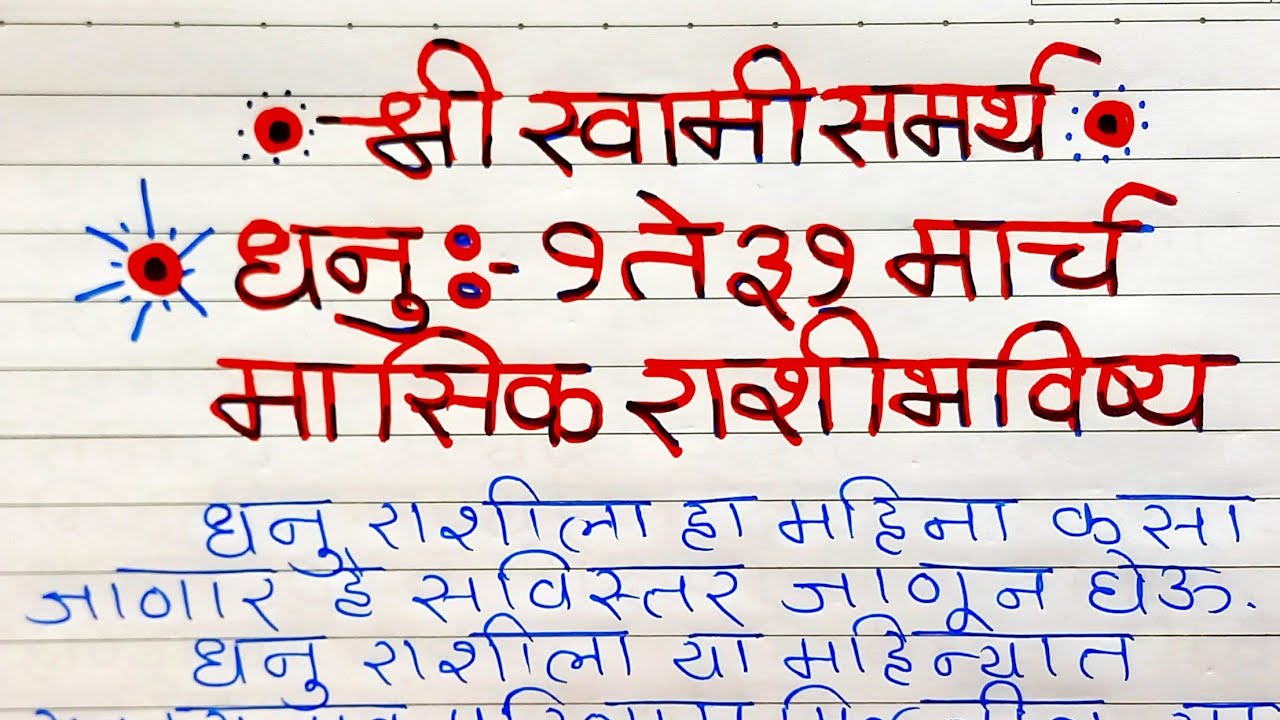 श्री स्वामी समर्थ
धनु :- १ ते ३१ मार्च
मासिक राशीभविष्य
धनु राशीला हा महिना कसा
जाणार हे सविस्तर जाणून घेऊ.
धनु राशीला या महिन्यात